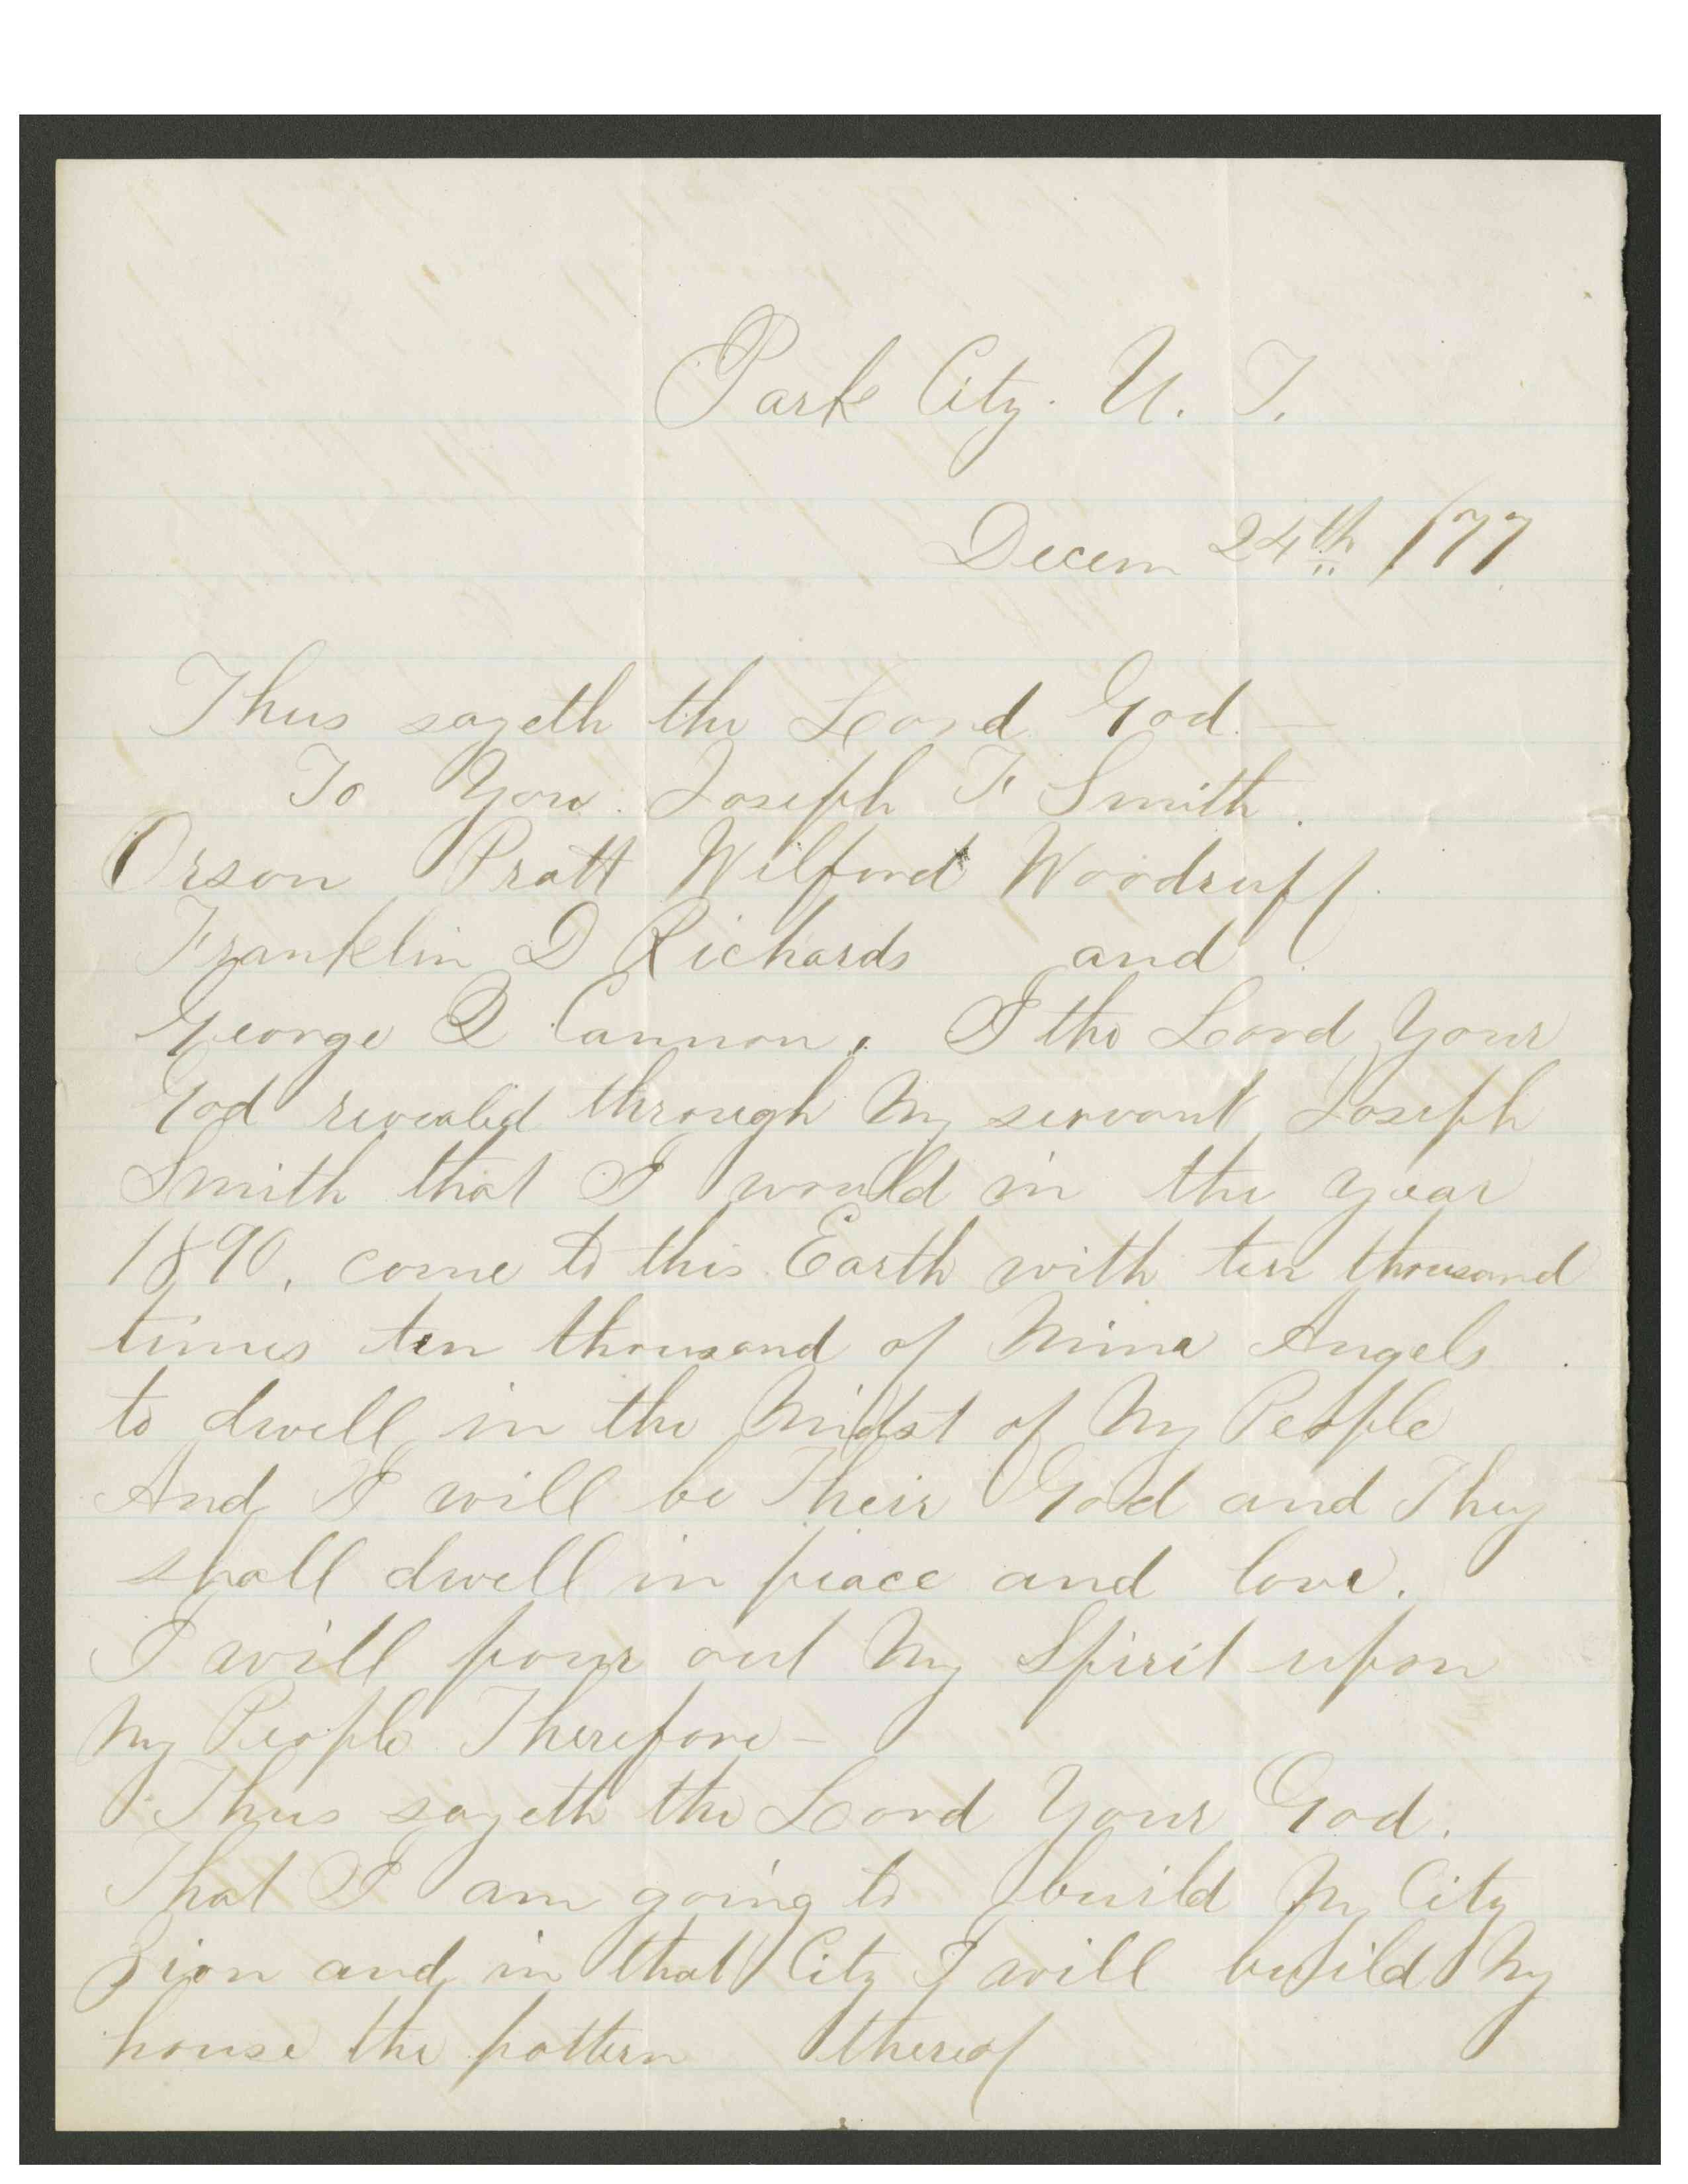 Park City. U. T.
Decem 24th /77
Thus sayeth the Lord God. —
To You. Joseph F Smith.
Orson Pratt Wilford Woodruff.
Franklin D Richards and
George Q Cannon. I the Lord Your
God revealed through My servant Joseph
Smith that I would in the year
1890. come to this Earth with ten thousand
times ten thousand of Mine Angels.
to dwell in the Midst of My People
And I will be Their God and They
shall dwell in peace and love.
I will pour out My Spirit upon
My People Therefore —
Thus sayeth the Lord Your God.
That I am going to build My City
Zion and in that City I will build My
house the pattern thereof